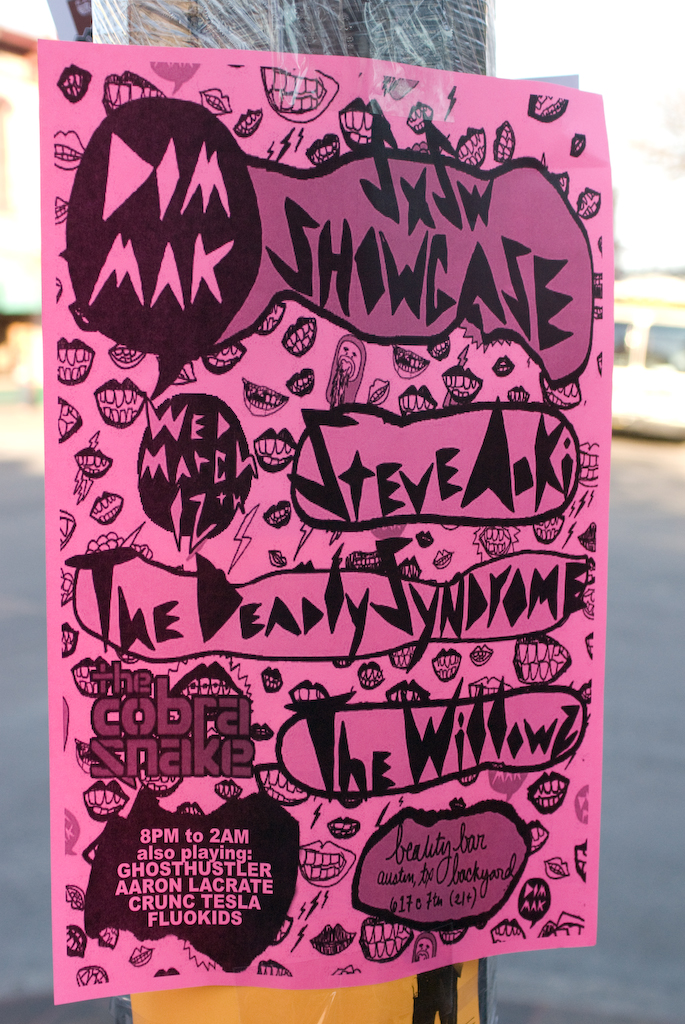 DIM
MAK
SxSW
SHOWCASE
WED
MARCH
12TH
STEVE AOKI
THE DEADLY SYNDROME
the
cobra
snake
THE WILLOWZ
8PM to 2AM
also playing:
GHOSTHUSTLER
AARON LACRATE
CRUNC TESLA
FLUOKIDS
beauty bar
austin, tx backyard
617 e 7th (21+)
DIM
MAK